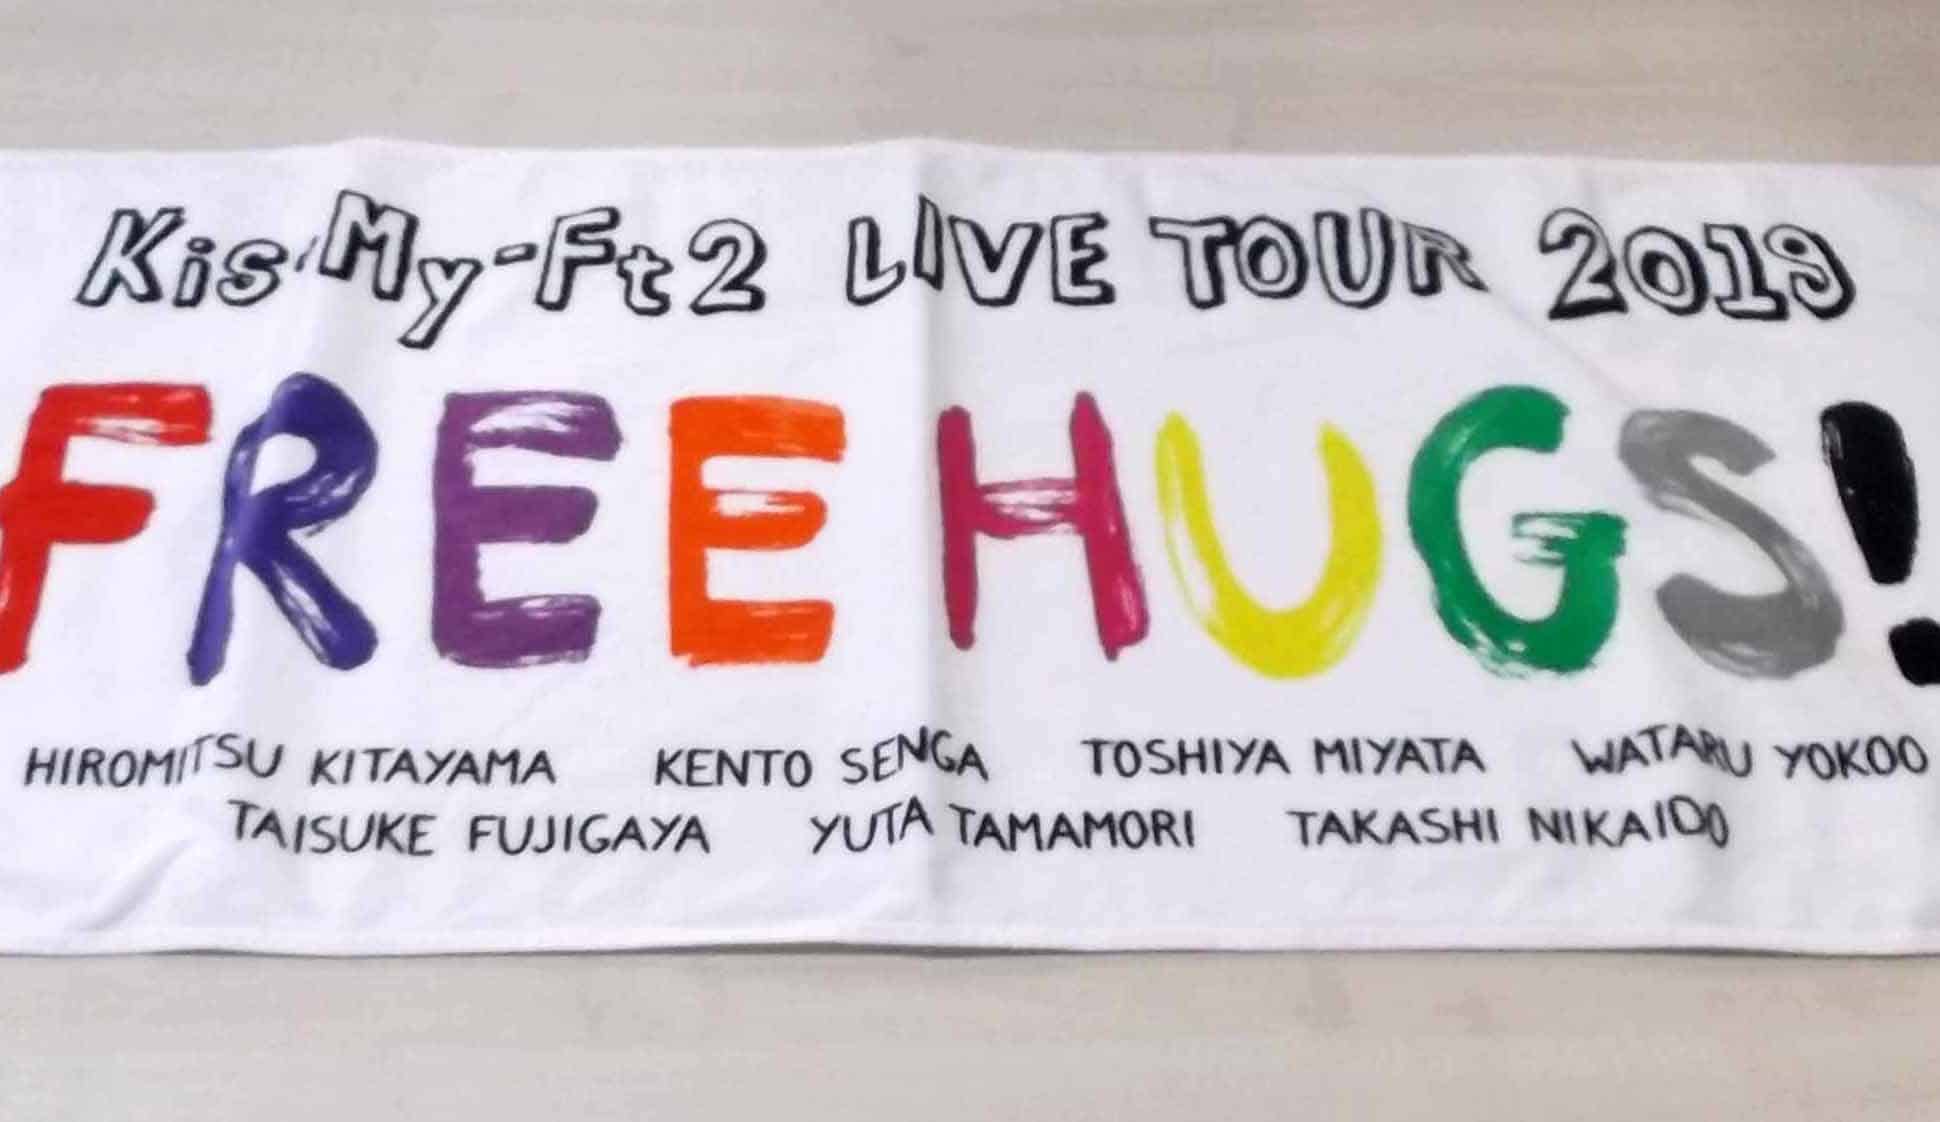 Kis-My-Ft2 LIVE TOUR 2019
FREE HUGS!
HIROMITSU KITAYAMA KENTO SENGA TOSHIYA MIYATA WATARU YOKOO
TAISUKE FUJIGAYA YUTA TAMAMORI TAKASHI NIKAIDO